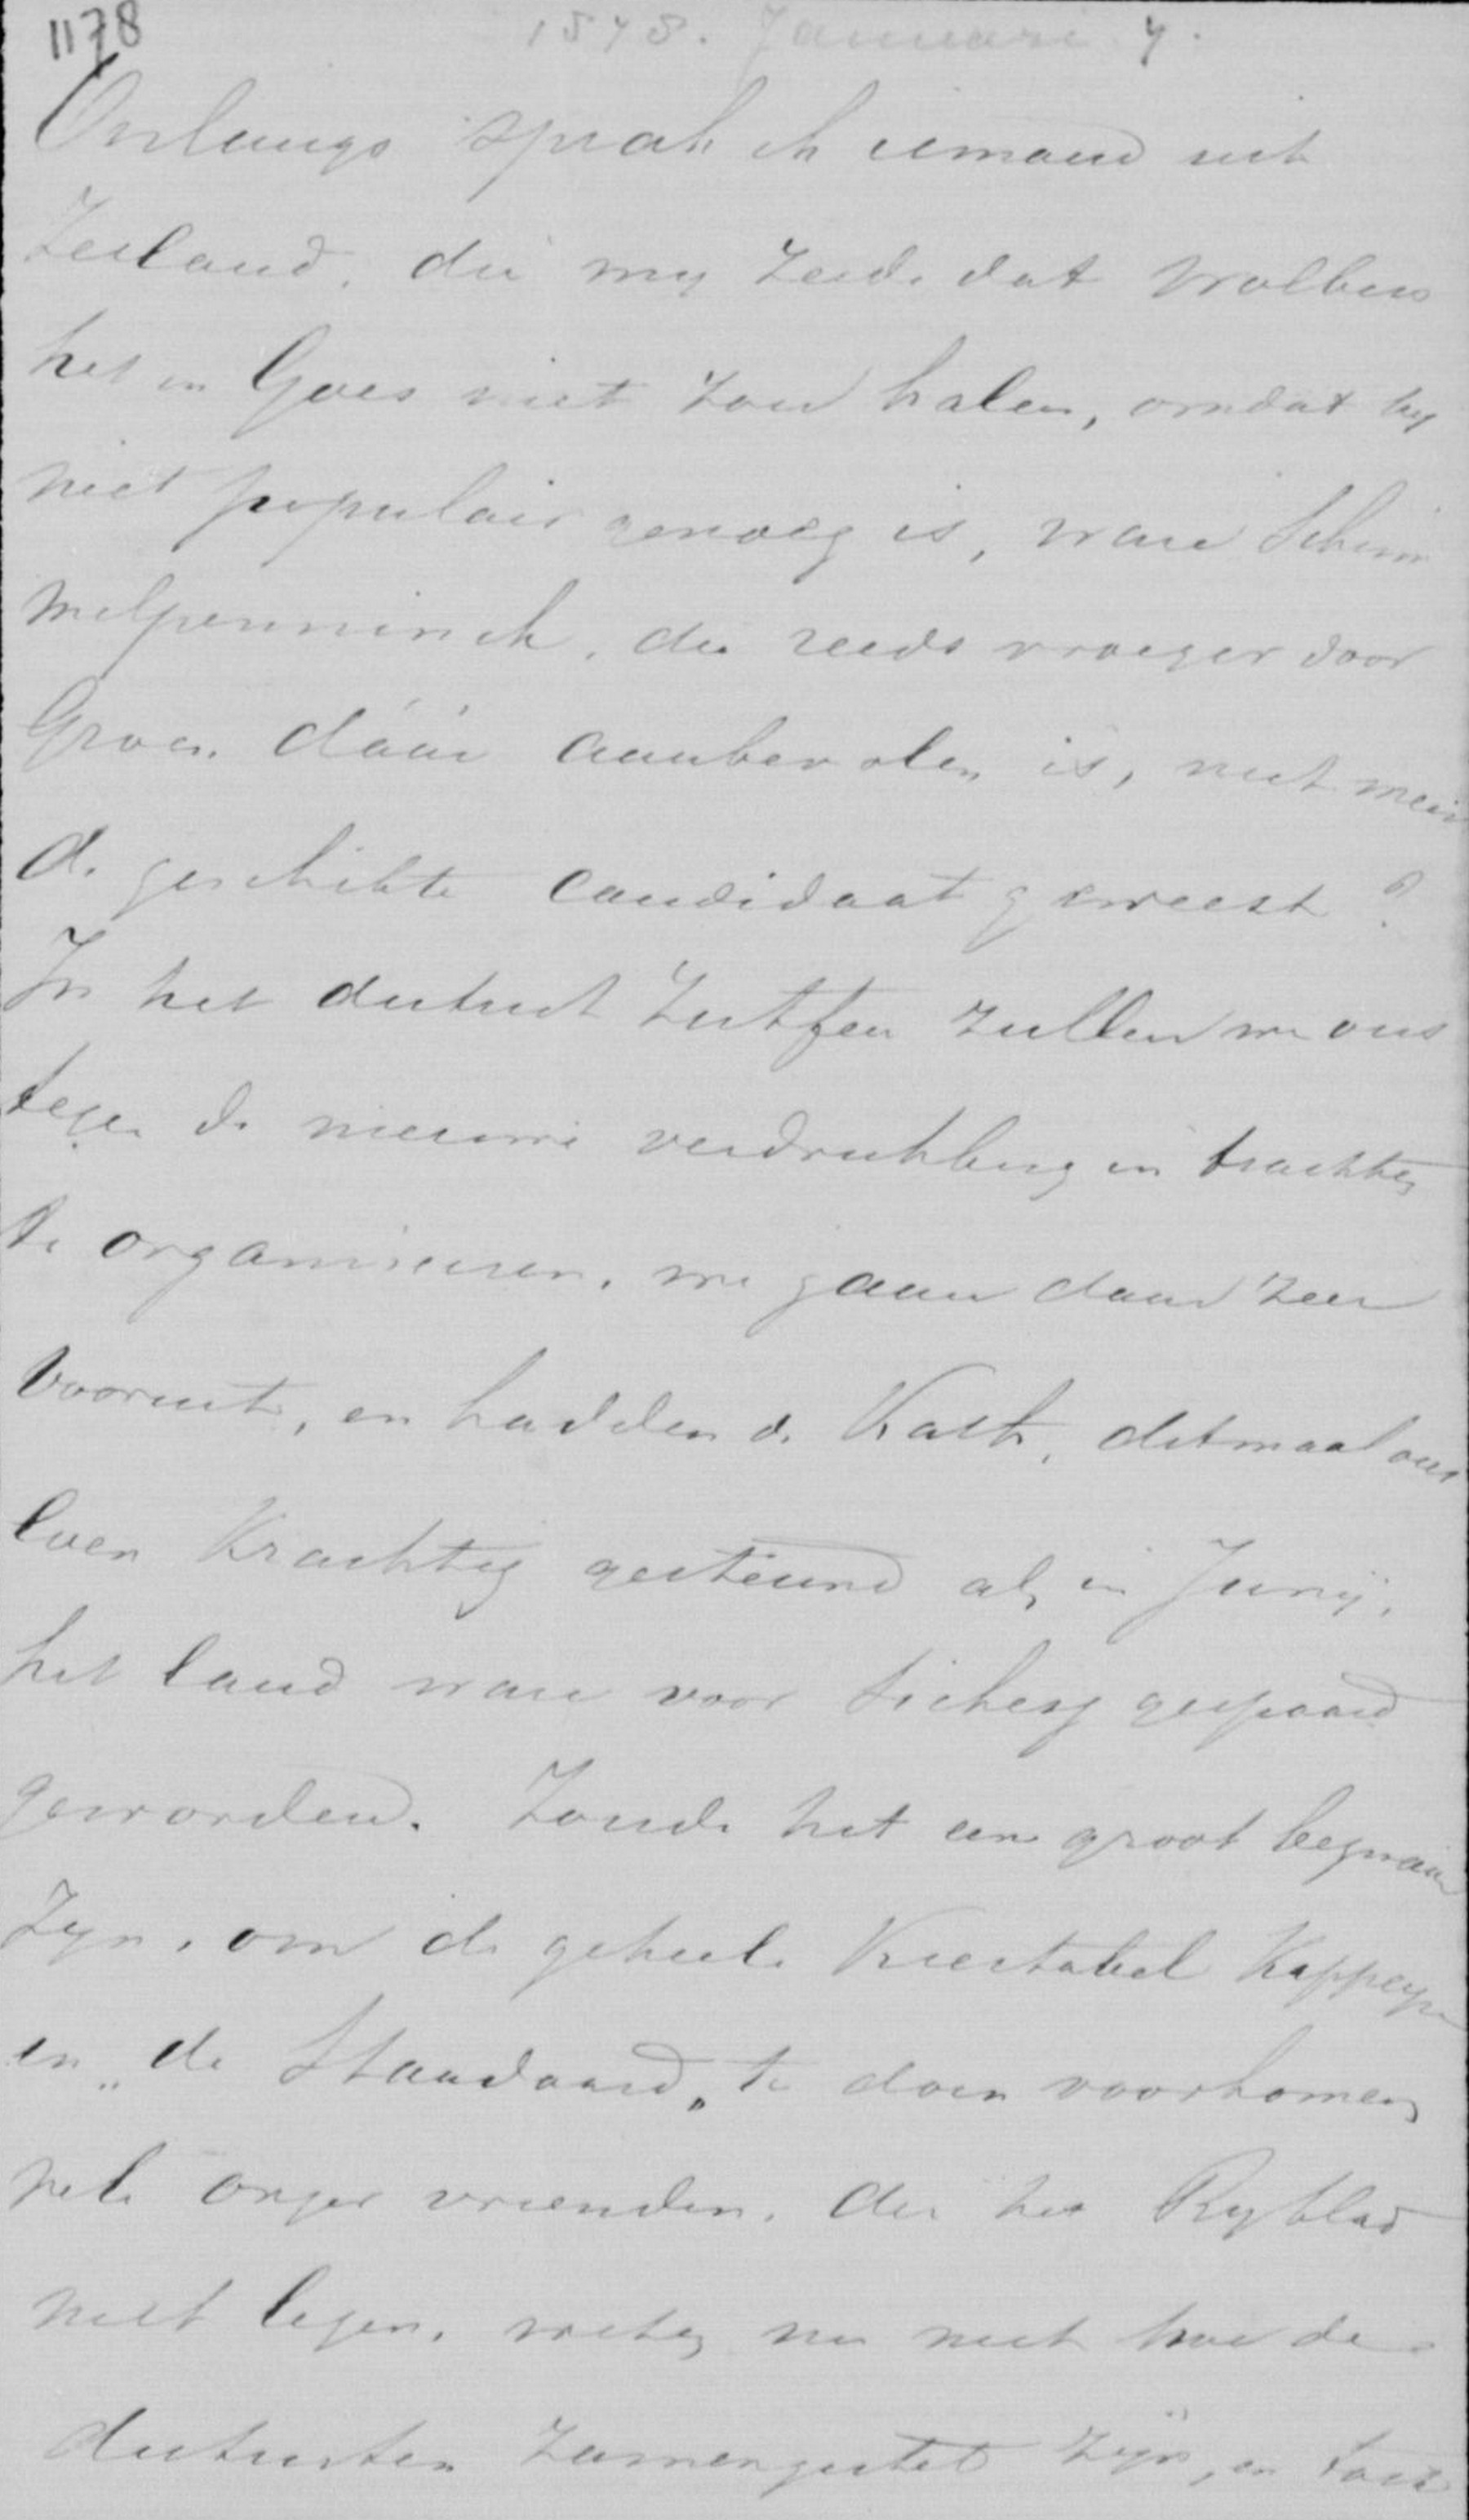 1178
1878. Januari 4.
Onlangs sprak ik iemand uit
Zeeland, die my zeide dat Wolbers
het in Goes niet zou halen, omdat hy
niet populair genoeg is, ware Schim
melpenninck, die reeds vroeger door
Groen dáár aanbevolen is, niet meer
de geschikte candidaat geweest?
In het district Zutfen zullen we ons
tegen de nieuwe verdrukking in trachten
te organiseeren, we gaan daar zeer
vooruit, en hadden de Kath. ditmaal ons
even krachtig gesteund als in Junij,
het land ware voor gespaard
geworden. Zoude het een groot bezwaar
zyn, om de geheele Kiestabel Kappeyne
in „de Standaard„ te doen voorkomen,
vele onzer vrienden, die het Byblad
niet lezen, weten nu niet hoe de
districten zamengesteld zijn, en toch